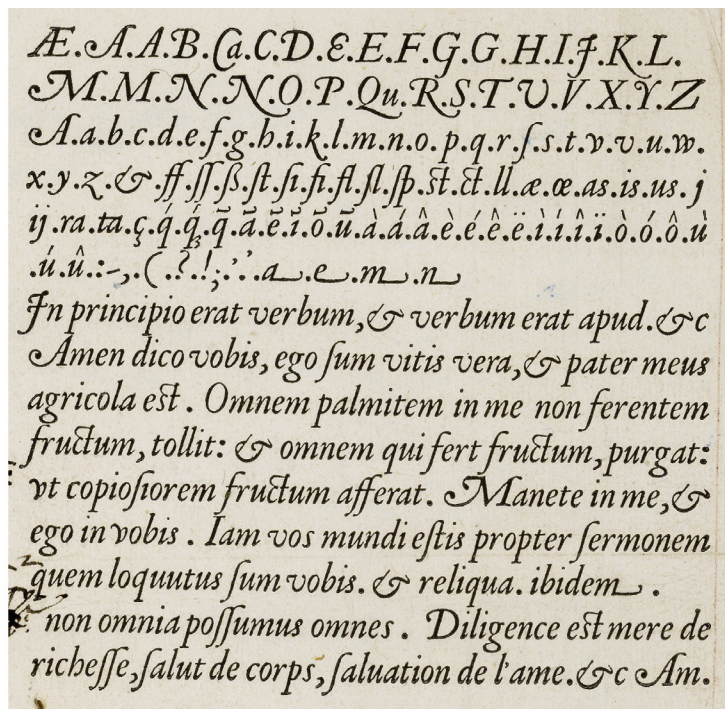 Æ.A.A.B.Ca.C.D.E.E.F.G.G.H.I.J.K.L.
M.M.N.N.O.P.Qu.R.S.T.U.V.X.Y.Z
A.a.b.c.d.e.f.g.h.i.k.l.m.n.o.p.q.r.ſ.s.t.v.v.u.w.
x.y.z.&.ff.ſſ.ß.ſt.ſi.fi.fl.ſl.ſp.st.ct.ll.æ.œ.as.is.us.j
ij.ra.ta.ç.q́.q́.q̃.ā.ē.ī.ō.ū.à.á.â.è.é.ê.ë.ì.í.î.ï.ò.ó.ô.ù
.ú.û.:-,.(.?.!;.'.'.a.e.m.n
In principio erat verbum,& verbum erat apud.&c
Amen dico vobis, ego ſum vitis vera,& pater meus
agricola est. Omnem palmitem in me non ferentem
fructum, tollit: & omnem qui fert fructum, purgat:
vt copioſiorem fructum afferat. Manete in me,&
ego in vobis. Iam vos mundi eſtis propter ſermonem
quem loquutus ſum vobis. & reliqua. ibidem.
non omnia poſſumus omnes. Diligence est mere de
richeſſe, ſalut de corps, ſaluation de l'ame.&c Am.